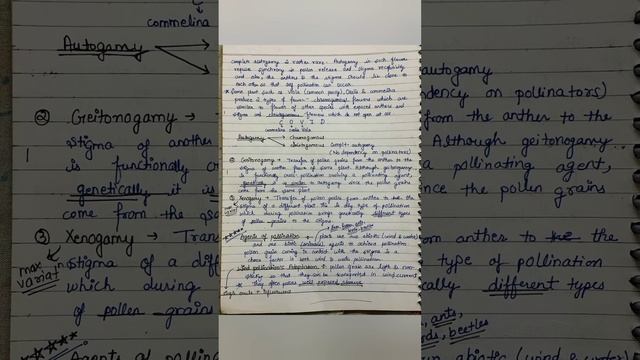 commelina
Autogamy
② Geitonogamy →
stigma of another
is functionally
genetically it is
come from the
③ Xenogamy → Tran
max variat
stigma of a diff
which during
of pollen grains
Agents of pollin
complete autogamy is rather rare. Autogamy in such flower
require synchrony in pollen release and stigma receptivity
and also the anthers & the stigma should lie close to
each other so that self pollination can occur.
* Some plant such as Viola (common pansy), Oxalis & commelina
produce 2 types of flower - chasmogamous flowers which are
similar to flower of other species with exposed anthers and
stigma and cleistogamous flowers which do not open at all.
C O V I D
commelina oxalis Viola
Autogamy → chasmogamous
→ cleistogamous complete autogamy
(No dependency on pollinators)
② Geitonogamy → Transfer of pollen grains from the anther to the
stigma of another flower of same plant. Although geitonogamy
is functionally cross-pollination involving a pollinating agent,
genetically it is similar to autogamy since the pollen grains
come from the same plant.
③ Xenogamy → Transfer of pollen grains from anther to the
stigma of a different plant this is the only type of pollination
which during pollination brings genetically different types
of pollen grains to the stigma.
Agents of pollination → plants use two abiotic (wind & water)
and one biotic (animals) agents to achieve pollination.
pollen grains coming in contact with the stigma is a
chance factor in both wind & water pollination.
Wind pollination's Adaptation → pollen grains are light & non-
sticky so that they can be transported in wind current
* They often posses well exposed stamens
autogamy
dependency on pollinators)
from the anther to the
Although geitonogamy
a pollinating agent,
since the pollen grains
from anther to the
type of pollination
genetically different types
ants,
beetles